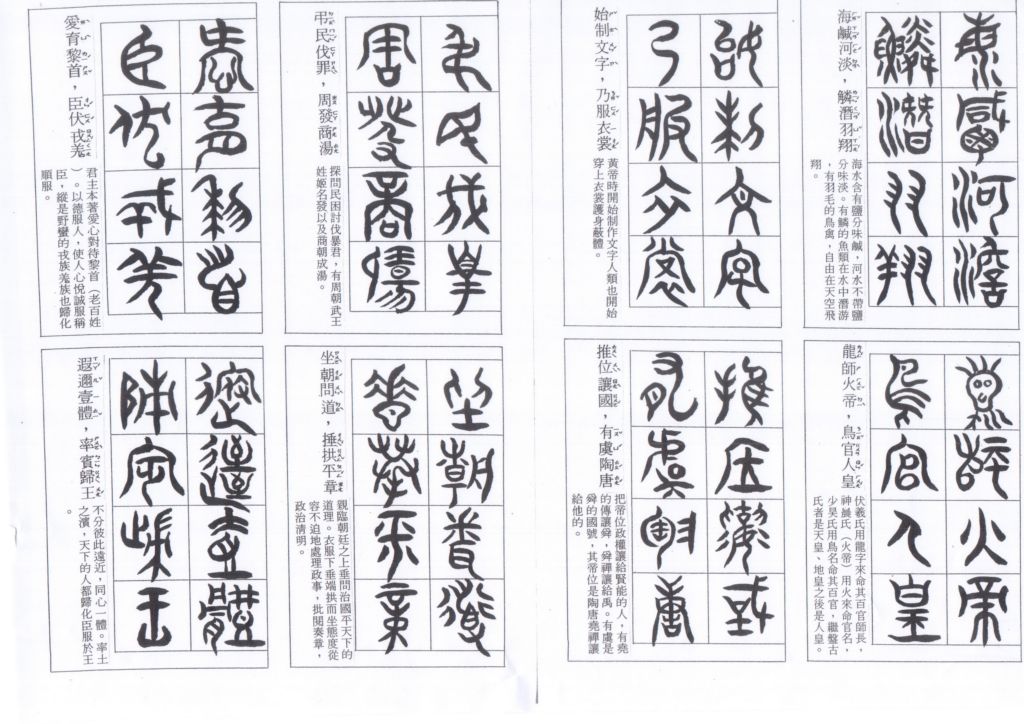 海鹹河淡
鱗潛羽翔
海鹹河淡，鱗潛羽翔
海水含有鹽分味鹹，河水不帶鹽
分味淡。有鱗的魚類在水中潛游
，有羽毛的鳥禽，自由在天空飛
翔。
龍師火帝
鳥官人皇
龍師火帝，鳥官人皇
伏羲氏用龍字來命其百官師長，
神農氏（火帝）用火來命官名，
少昊氏用鳥名命其百官，繼盤古
氏者是天皇、地皇之後是人皇。
始制文字
乃服衣裳
始制文字，乃服衣裳
黃帝時開始制作文字人類也開始
穿上衣裳護身蔽體。
推位讓國
有虞陶唐
推位讓國，有虞陶唐
把帝位政權讓給賢能的人，有堯
的傳讓舜，舜禪讓給禹。有虞是
舜的國號，其帝位是陶唐堯禪讓
給他的。
弔民伐罪
周發商湯
弔民伐罪，周發商湯
探問民困討伐暴君，有周朝武王
姓姬名發以及商朝成湯。
坐朝問道
垂拱平章
坐朝問道，捶拱平章
親臨朝廷之上垂問治國平天下的
道理。衣服下垂端拱而坐態度從
容不迫地處理政事，批閱奏章，
政治清明。
愛育黎首
臣伏戎羌
愛育黎首，臣伏戎羌
君主本著愛心對待黎首（老百姓
）。以德服人，使人心悅誠服稱
臣，縱是野蠻的戎族羌族也歸化
順服。
遐邇壹體
率賓歸王
遐邇壹體，率賓歸王
不分彼此遠近，同心一體。率土
之濱，天下的人都歸化臣服於王
。